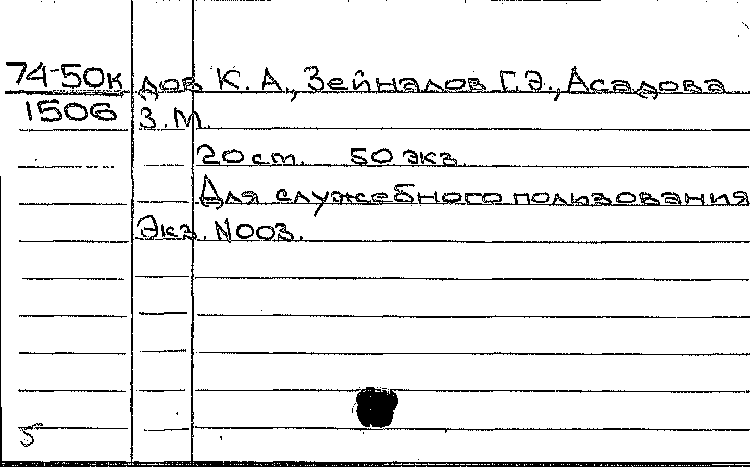 74-50к дов К. А., Зейналов Г.Э., Асадова
1506 З. М.
20 ст. 50 экз.
Для служебного пользования
Экз. N003.
5